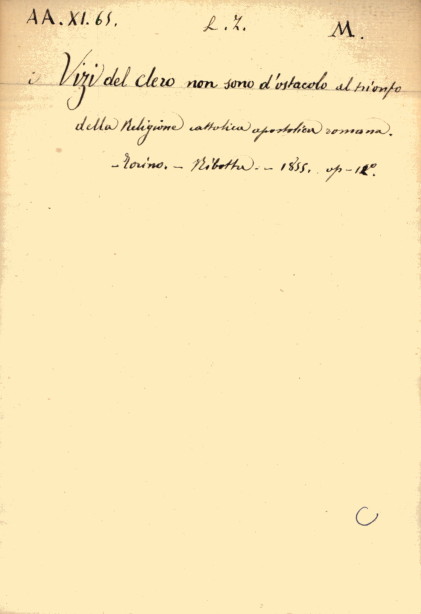 AA. XI. 65. L. Z. M.
i Vizi del clero non sono d'ostacolo al trionfo
della Religione cattolica apostolica romana.
– Torino. – Ribotta. – 1855. op – 12°.
C